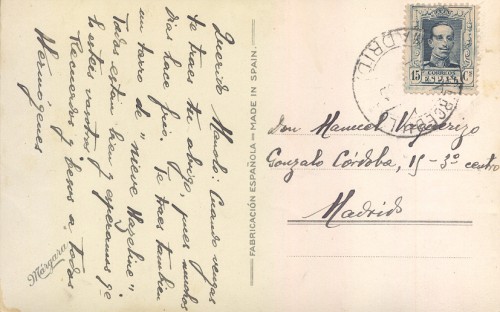 Querido Manolo: Cuando vengas
te traes tu abrigo, pues muchos
dias hace frio. Te traes tambien
un tarro de "nieve Hazeline".
Todos estan bien y esperamos qe
lo esteis vosotros.
Recuerdos y besos a todos.
Hermógenes
Márgara
FABRICACIÓN ESPAÑOLA — MADE IN SPAIN.
MADRID
15 CORREOS Cs
ESPAÑA
Don Manuel Vaquerizo
Gonzalo Córdoba, 15-3º centro
Madrid